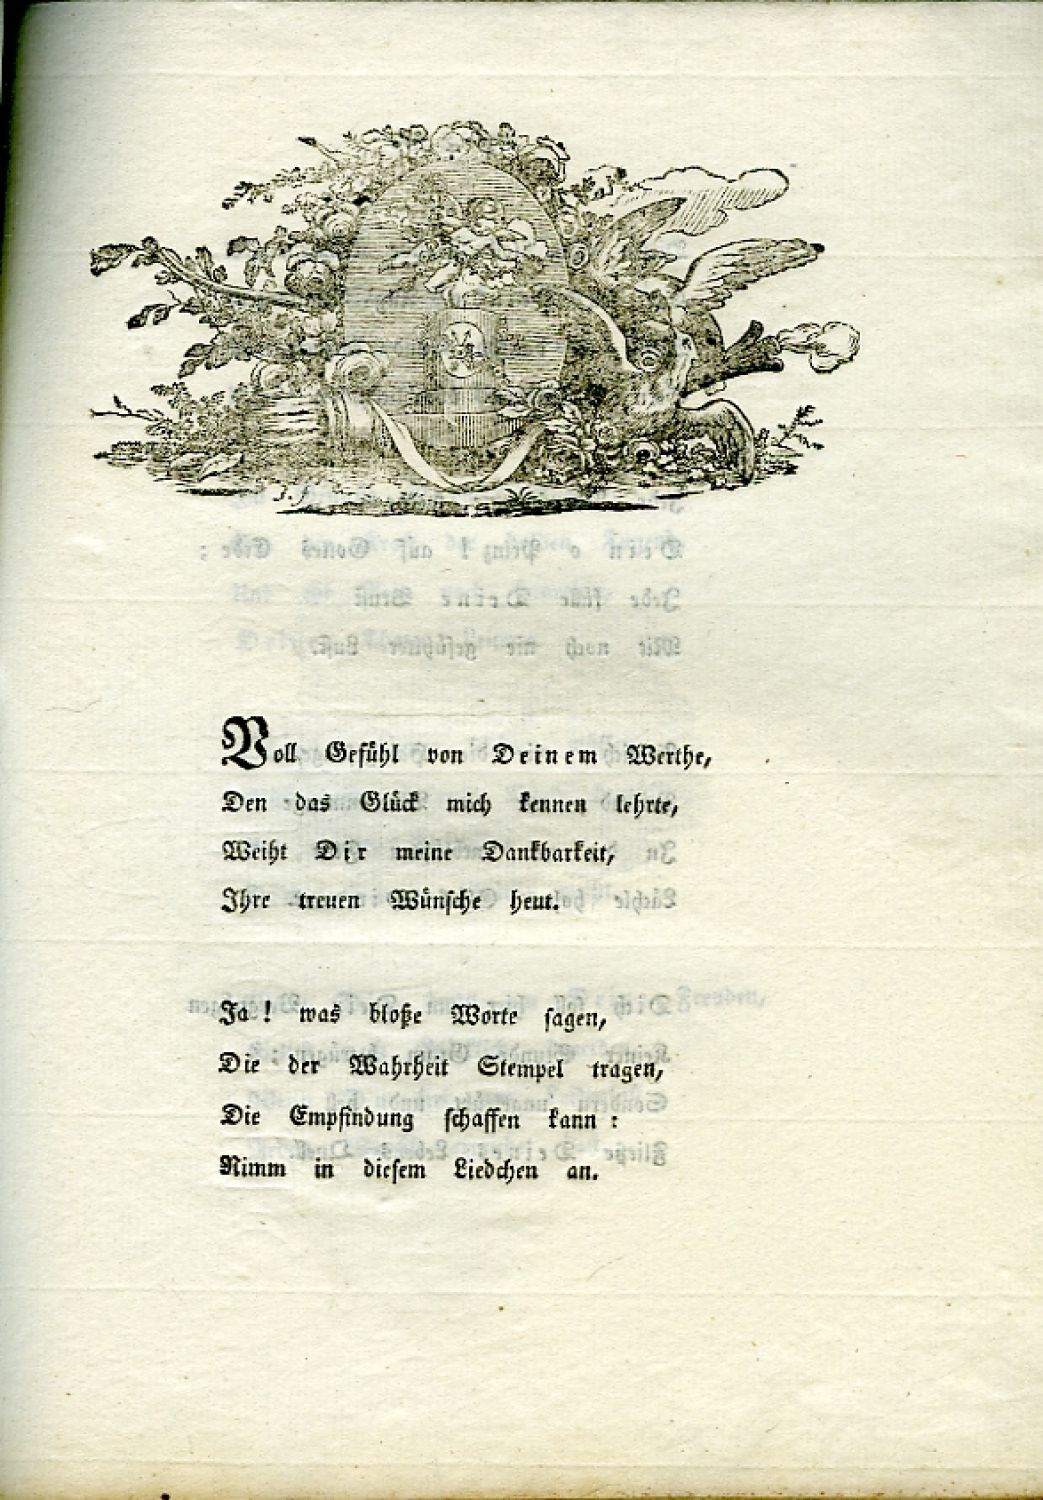 Voll Gefühl von Deinem Werthe,
Den das Glück mich kennen lehrte,
Weiht Dir meine Dankbarkeit,
Ihre treuen Wünsche heut.
Ja! was bloße Worte sagen,
Die der Wahrheit Stempel tragen,
Die Empfindung schaffen kann:
Nimm in diesem Liedchen an.